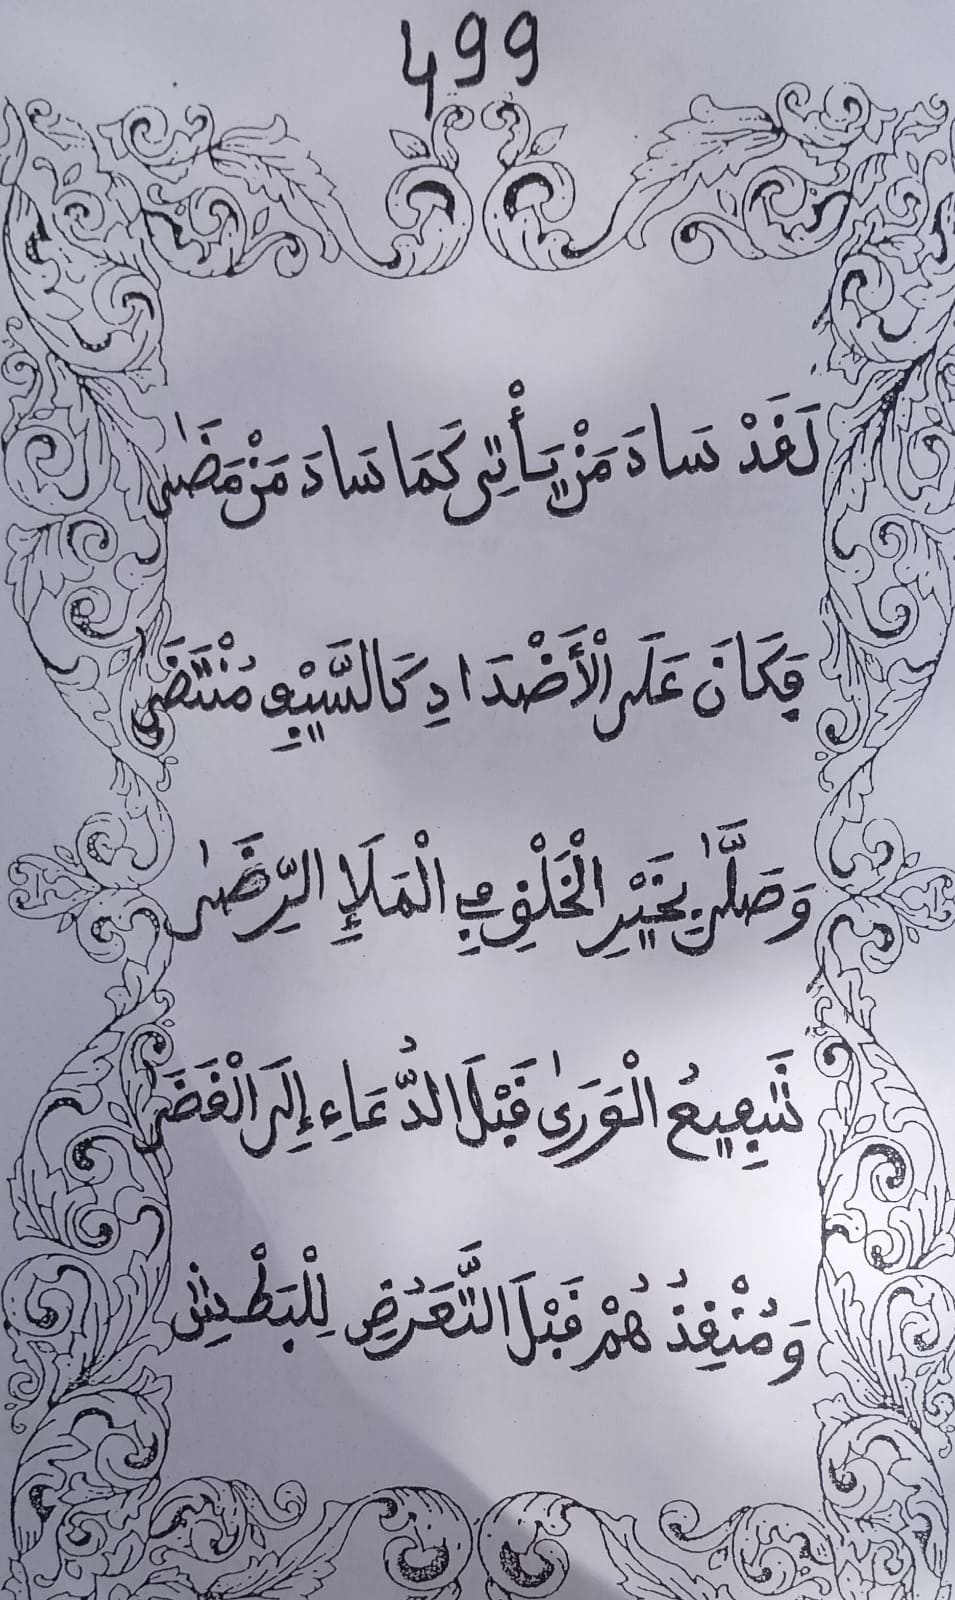 499
لَقَدْ سَادَ مَنْ يَأْتِي كَمَا سَادَ مَنْ مَضَىٰ
فَكَانَ عَلَى الْأَضْدَادِ كَالسَّيْفِ مُنْتَضَى
وَصَلَّىٰ بِخَيْرِ الْخَلْقِ فِي الْمَلَإِ الرِّضَىٰ
شَفِيعُ الْوَرَىٰ قَبْلَ الدُّعَاءِ إِلَى الْقَضَى
وَمُنْقِذُهُمْ قَبْلَ التَّعَرُّضِ لِلْبَطْشِ